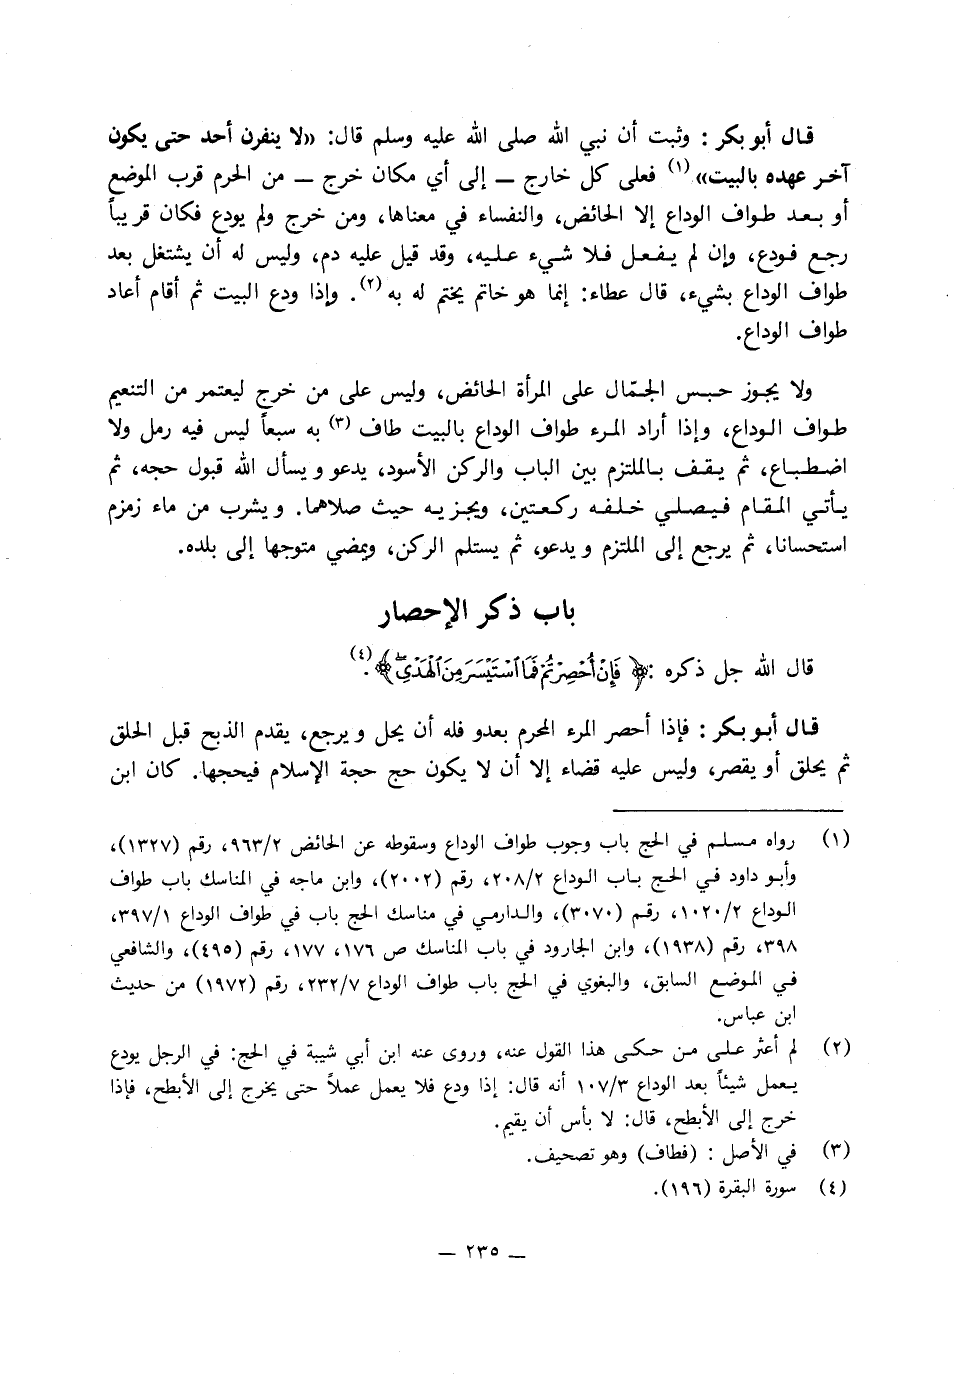 قال أبو بكر : وثبت أن نبي الله صلى الله عليه وسلم قال: «لا ينفرن أحد حتى يكون
آخر عهده بالبيت» (١) فعلى كل خارج — إلى أي مكان خرج — من الحرم قرب الموضع
أو بعد طواف الوداع إلا الحائض، والنفساء في معناها، ومن خرج ولم يودع فكان قريباً
رجع فودع، وإن لم يفعل فلا شيء عليه، وقد قيل عليه دم، وليس له أن يشتغل بعد
طواف الوداع بشيء، قال عطاء: إنما هو خاتم يختم له به (٢). وإذا ودع البيت ثم أقام أعاد
طواف الوداع.
ولا يجوز حبس الجمّال على المرأة الحائض، وليس على من خرج ليعتمر من التنعيم
طواف الوداع، وإذا أراد المرء طواف الوداع بالبيت طاف (٣) به سبعاً ليس فيه رمل ولا
اضطباع، ثم يقف بالملتزم بين الباب والركن الأسود، يدعو ويسأل الله قبول حجه، ثم
يأتي المقام فيصلي خلفه ركعتين، ويجزيه حيث صلاهما. ويشرب من ماء زمزم
استحسانا، ثم يرجع إلى الملتزم ويدعو، ثم يستلم الركن، ويمضي متوجها إلى بلده.
باب ذكر الإحصار
قال الله جل ذكره :﴿ فَإِنْ أُحْصِرْتُمْ فَمَا اسْتَيْسَرَ مِنَ الْهَدْيِ ﴾. (٤)
قال أبو بكر : فإذا أحصر المرء المحرم بعدو فله أن يحل ويرجع، يقدم الذبح قبل الحلق
ثم يحلق أو يقصر، وليس عليه قضاء إلا أن لا يكون حج حجة الإسلام فيحجها. كان ابن
(١) رواه مسلم في الحج باب وجوب طواف الوداع وسقوطه عن الحائض ٩٦٣/٢، رقم (١٣٢٧)،
وأبو داود في الحج باب الوداع ٢٠٨/٢، رقم (٢٠٠٢)، وابن ماجه في المناسك باب طواف
الوداع ١٠٢٠/٢، رقم (٣٠٧٠)، والدارمي في مناسك الحج باب في طواف الوداع ٣٩٧/١،
٣٩٨، رقم (١٩٣٨)، وابن الجارود في باب المناسك ص ١٧٦، ١٧٧، رقم (٤٩٥)، والشافعي
في الموضع السابق، والبغوي في الحج باب طواف الوداع ٢٣٢/٧، رقم (١٩٧٢) من حديث
ابن عباس.
(٢) لم أعثر على من حكى هذا القول عنه، وروى عنه ابن أبي شيبة في الحج: في الرجل يودع
يعمل شيئاً بعد الوداع ١٠٧/٣ أنه قال: إذا ودع فلا يعمل عملاً حتى يخرج إلى الأبطح، فإذا
خرج إلى الأبطح، قال: لا بأس أن يقيم.
(٣) في الأصل : (فطاف) وهو تصحيف.
(٤) سورة البقرة (١٩٦).
— ٢٣٥ —